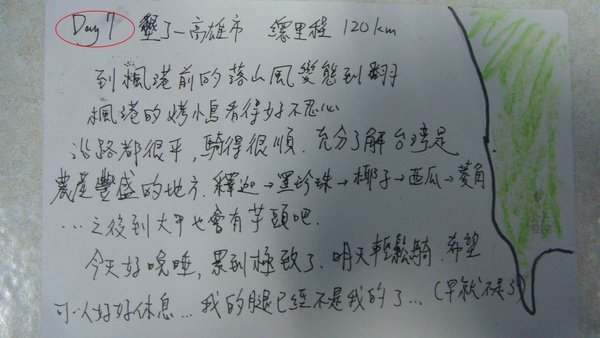 Day 7 墾丁-高雄市 總里程 120km
到楓港前的落山風變態到翻
楓港的烤小鳥看得好不忍心
沿路都很平,騎得很順.充分了解台灣是
農產豐盛的地方.釋迦→黑珍珠→椰子→西瓜→菱角
…之後到大甲也會有芋頭吧.
今天好晚睡,累到極致了.明天輕鬆騎.希望
可以好好休息…我的腿已經不是我的了…(早就不是了)